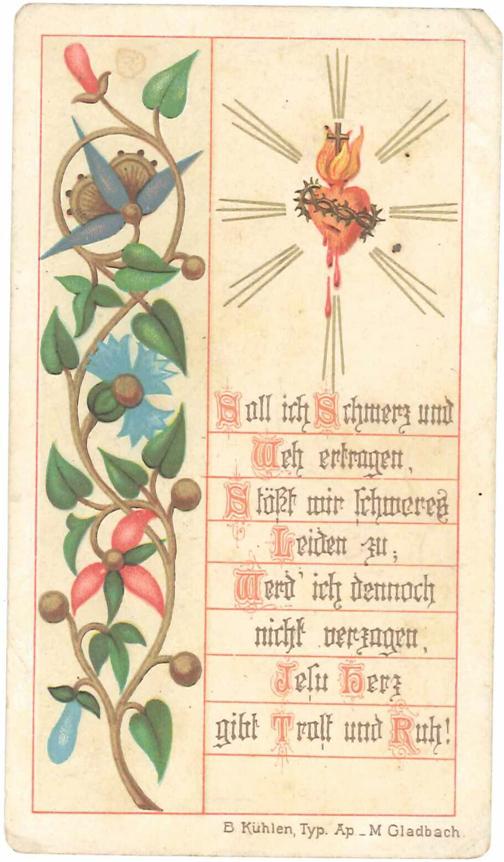 Soll ich Schmerz und
Weh ertragen,
Stößt mir schweres
Leiden zu;
Werd' ich dennoch
nicht verzagen,
Jesu Herz
gibt Trost und Ruh!
B Kühlen, Typ. Ap _ M Gladbach.